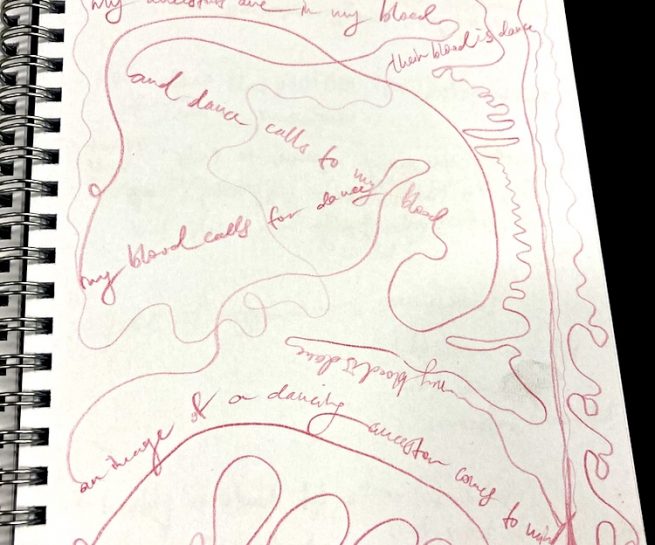 my ancestors are in my blood
their blood is dance
and dance calls to my blood
my blood calls for dance
my blood is dance
an image of a dancing ancestor comes to mind